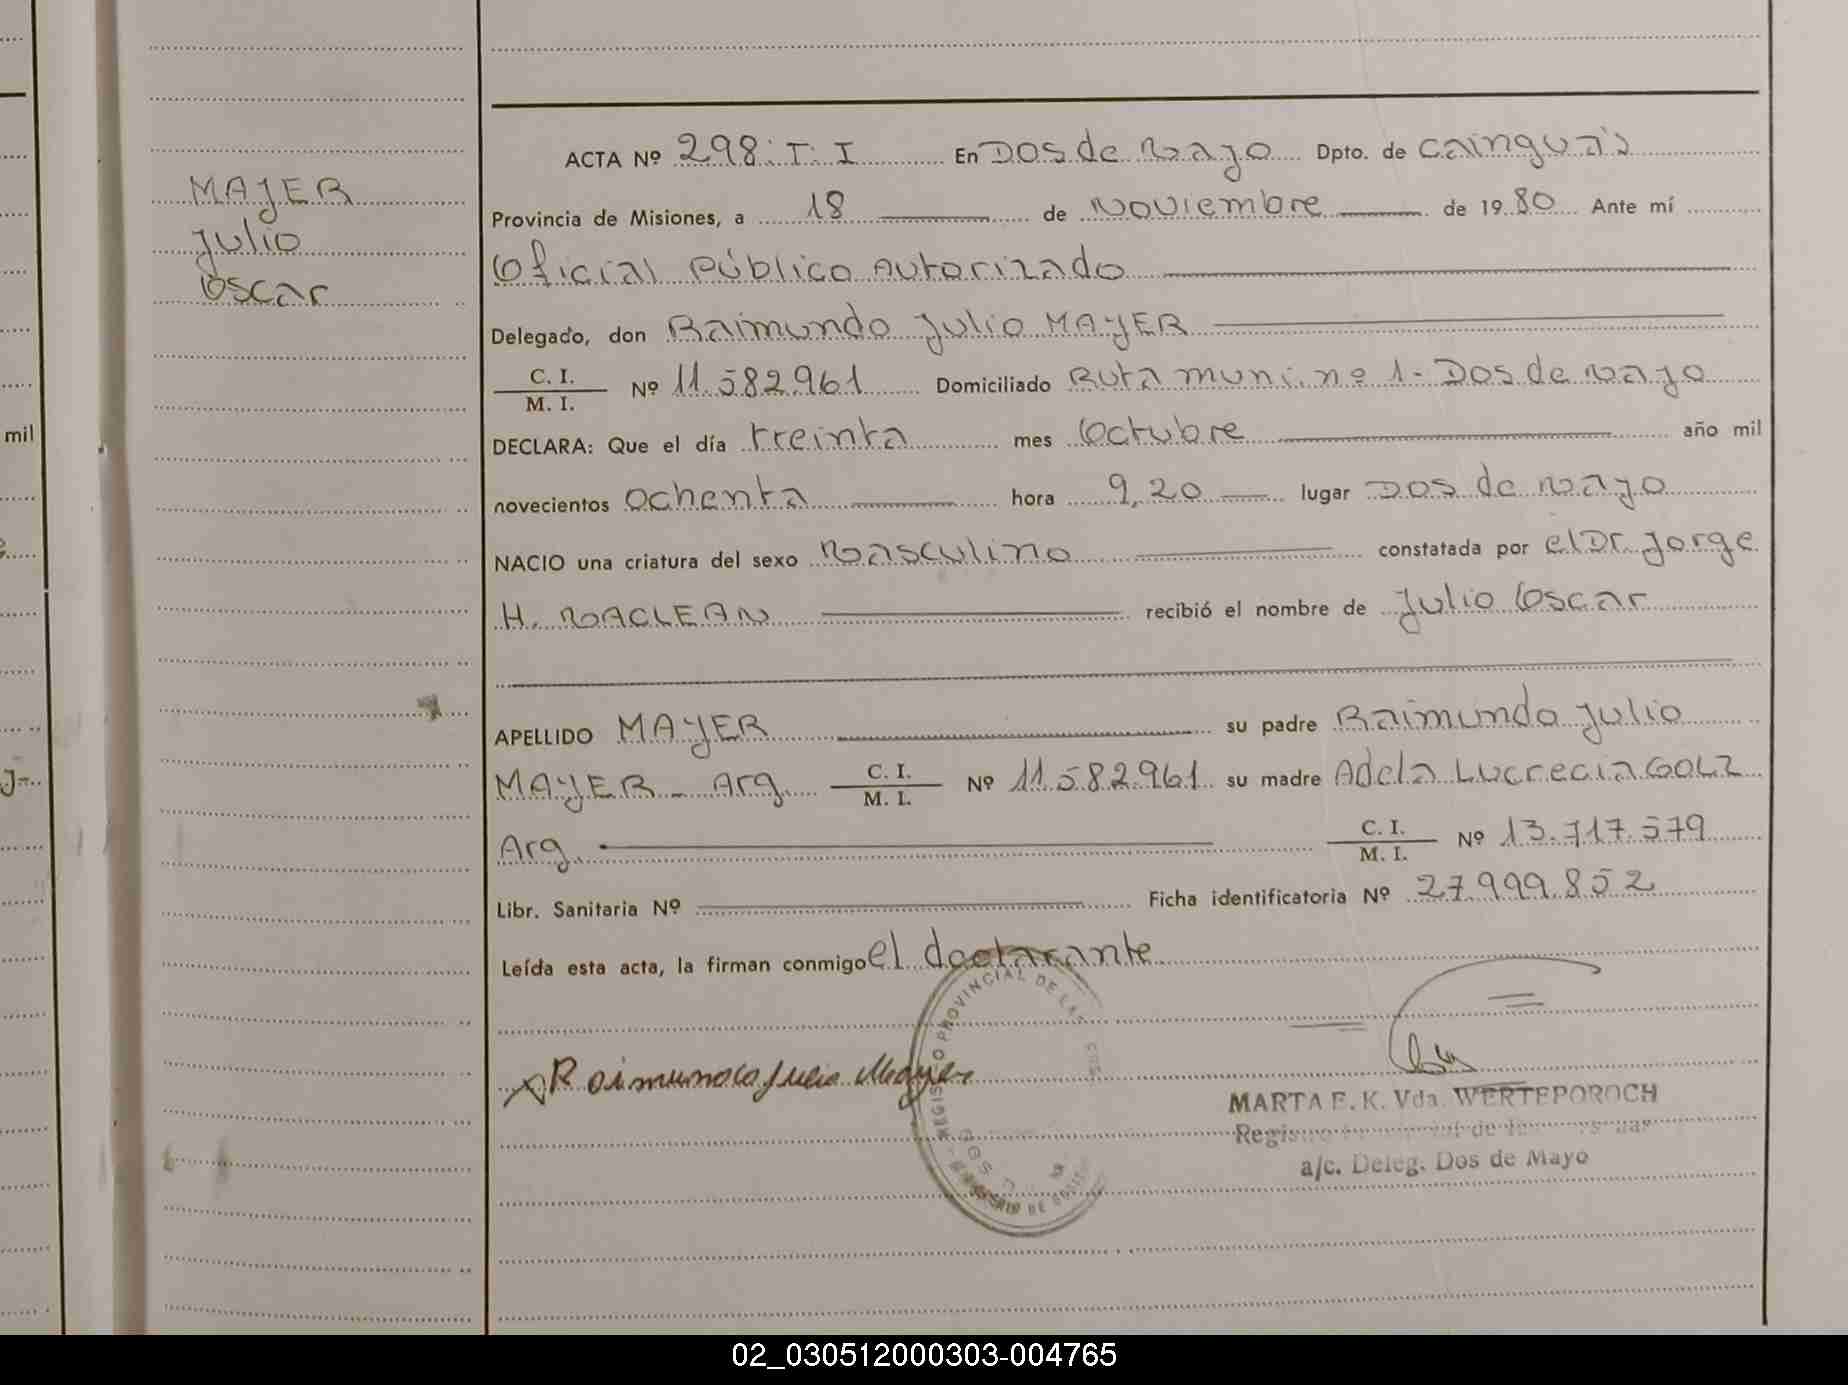 MAYER
Julio
Oscar
ACTA Nº 298. T. I En Dos de Mayo Dpto. de Cainguás
Provincia de Misiones, a 18 de Noviembre de 1980 Ante mí
Oficial Público Autorizado
Delegado, don Raimundo Julio MAYER
C. I.
M. I. Nº 11.582.961 Domiciliado Ruta Muni. nº 1 - Dos de Mayo
DECLARA: Que el día treinta mes Octubre año mil
novecientos Ochenta hora 9,20 lugar Dos de Mayo
NACIO una criatura del sexo Masculino constatada por el Dr. Jorge
H. MACLEAN recibió el nombre de Julio Oscar
APELLIDO MAYER su padre Raimundo Julio
MAYER - Arg C. I.
M. I. Nº 11.582.961 su madre Adela Lucrecia GOLZ
Arg C. I.
M. I. Nº 13.717.579
Libr. Sanitaria Nº Ficha identificatoria Nº 27.999.852
Leída esta acta, la firman conmigo el declarante
REGISTRO PROVINCIAL DE LAS
X Raimundo Julio Mayer
MARTA E. K. Vda. WERTEPOROCH
a/c. Deleg. Dos de Mayo
mil
02_030512000303-004765